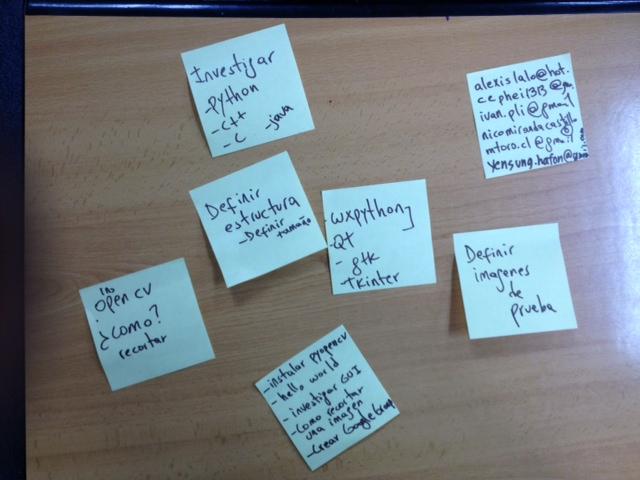 Investigar
python
- C++
- C
- java
alexislalo@hot.
cephei1313@gm.
ivan.pli@gmail
nicomirandacastillo
@
mtoro.cl@gmail
yensung.hafon@gmail.com
Definir
estructura
- Definir
tamaño
- wxpython
- QT
- gtk
- TKinter
Definir
imagenes
de
prueba
open cv
¿como?
recortar
- instalar pyopencv
- hello world
- investigar GUI
- como recortar
una imagen
- Crear Google Group